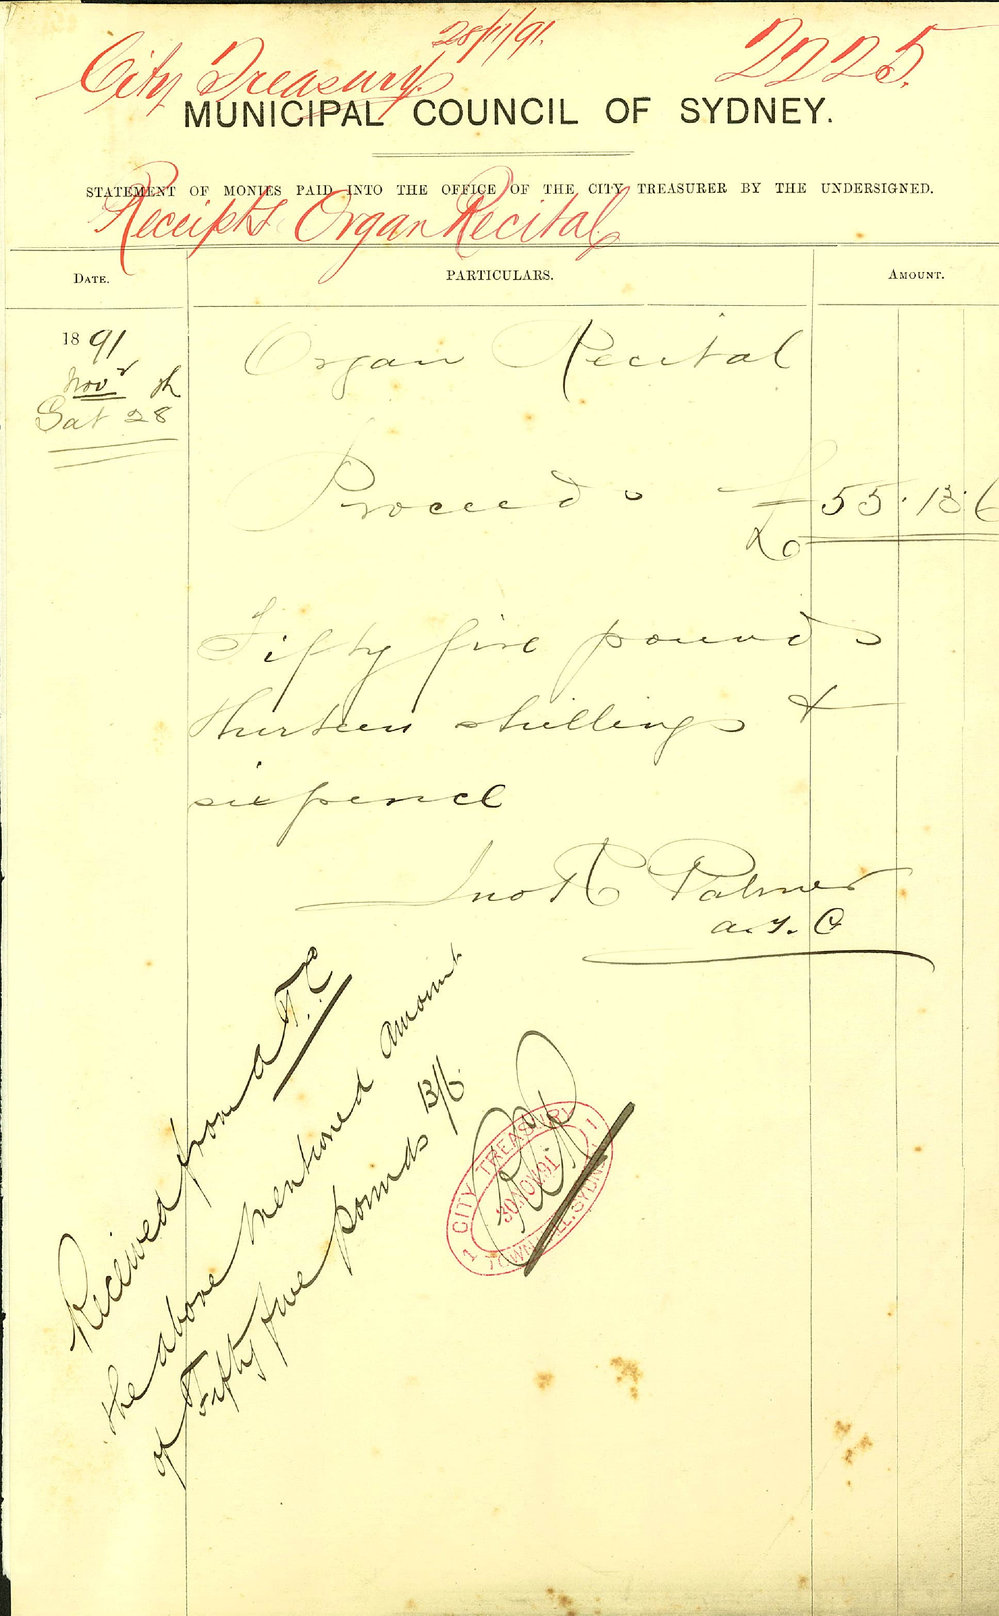 28/11/91.
City Treasury. 2225.
MUNICIPAL COUNCIL OF SYDNEY.
STATEMENT OF MONIES PAID INTO THE OFFICE OF THE CITY TREASURER BY THE UNDERSIGNED.
Receipts Organ Recital
DATE. PARTICULARS. AMOUNT.
1891 Organ Recital
Novr th
Sat 28
Proceeds £55.13.6
Fifty five pounds
thirteen shillings &
sixpence
Jno R Palmer
a.T.C
Received from a T.C
the above mentioned amount
of Fifty five pounds 13/6
1 CITY TREASURY 1
30 NOV. 91
TOWN HALL. SYDNEY